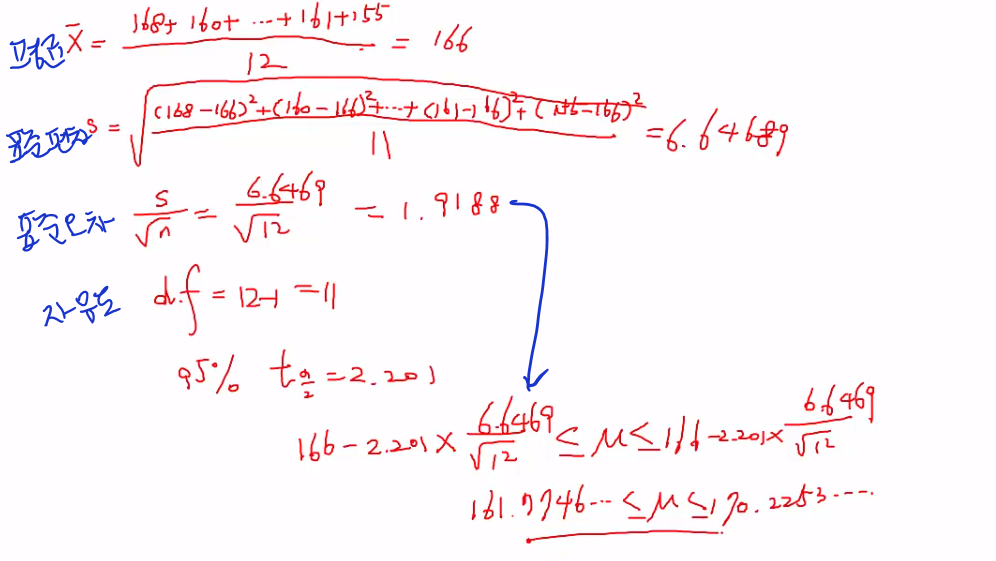 평균 X̄ = (168+160+⋯+161+155)/12 = 166
표준편차 s = √((168-166)²+(160-166)²+⋯+(161-166)²+(155-166)²)/11 = 6.64689
표준오차 s/√n = 6.6469/√12 = 1.9188
자유도 d.f = 12-1 = 11
95% t α/2 = 2.201
166 - 2.201 × 6.6469/√12 ≤ μ ≤ 166 - 2.201 × 6.6469/√12
161.7746⋯ ≤ μ ≤ 170.2253⋯